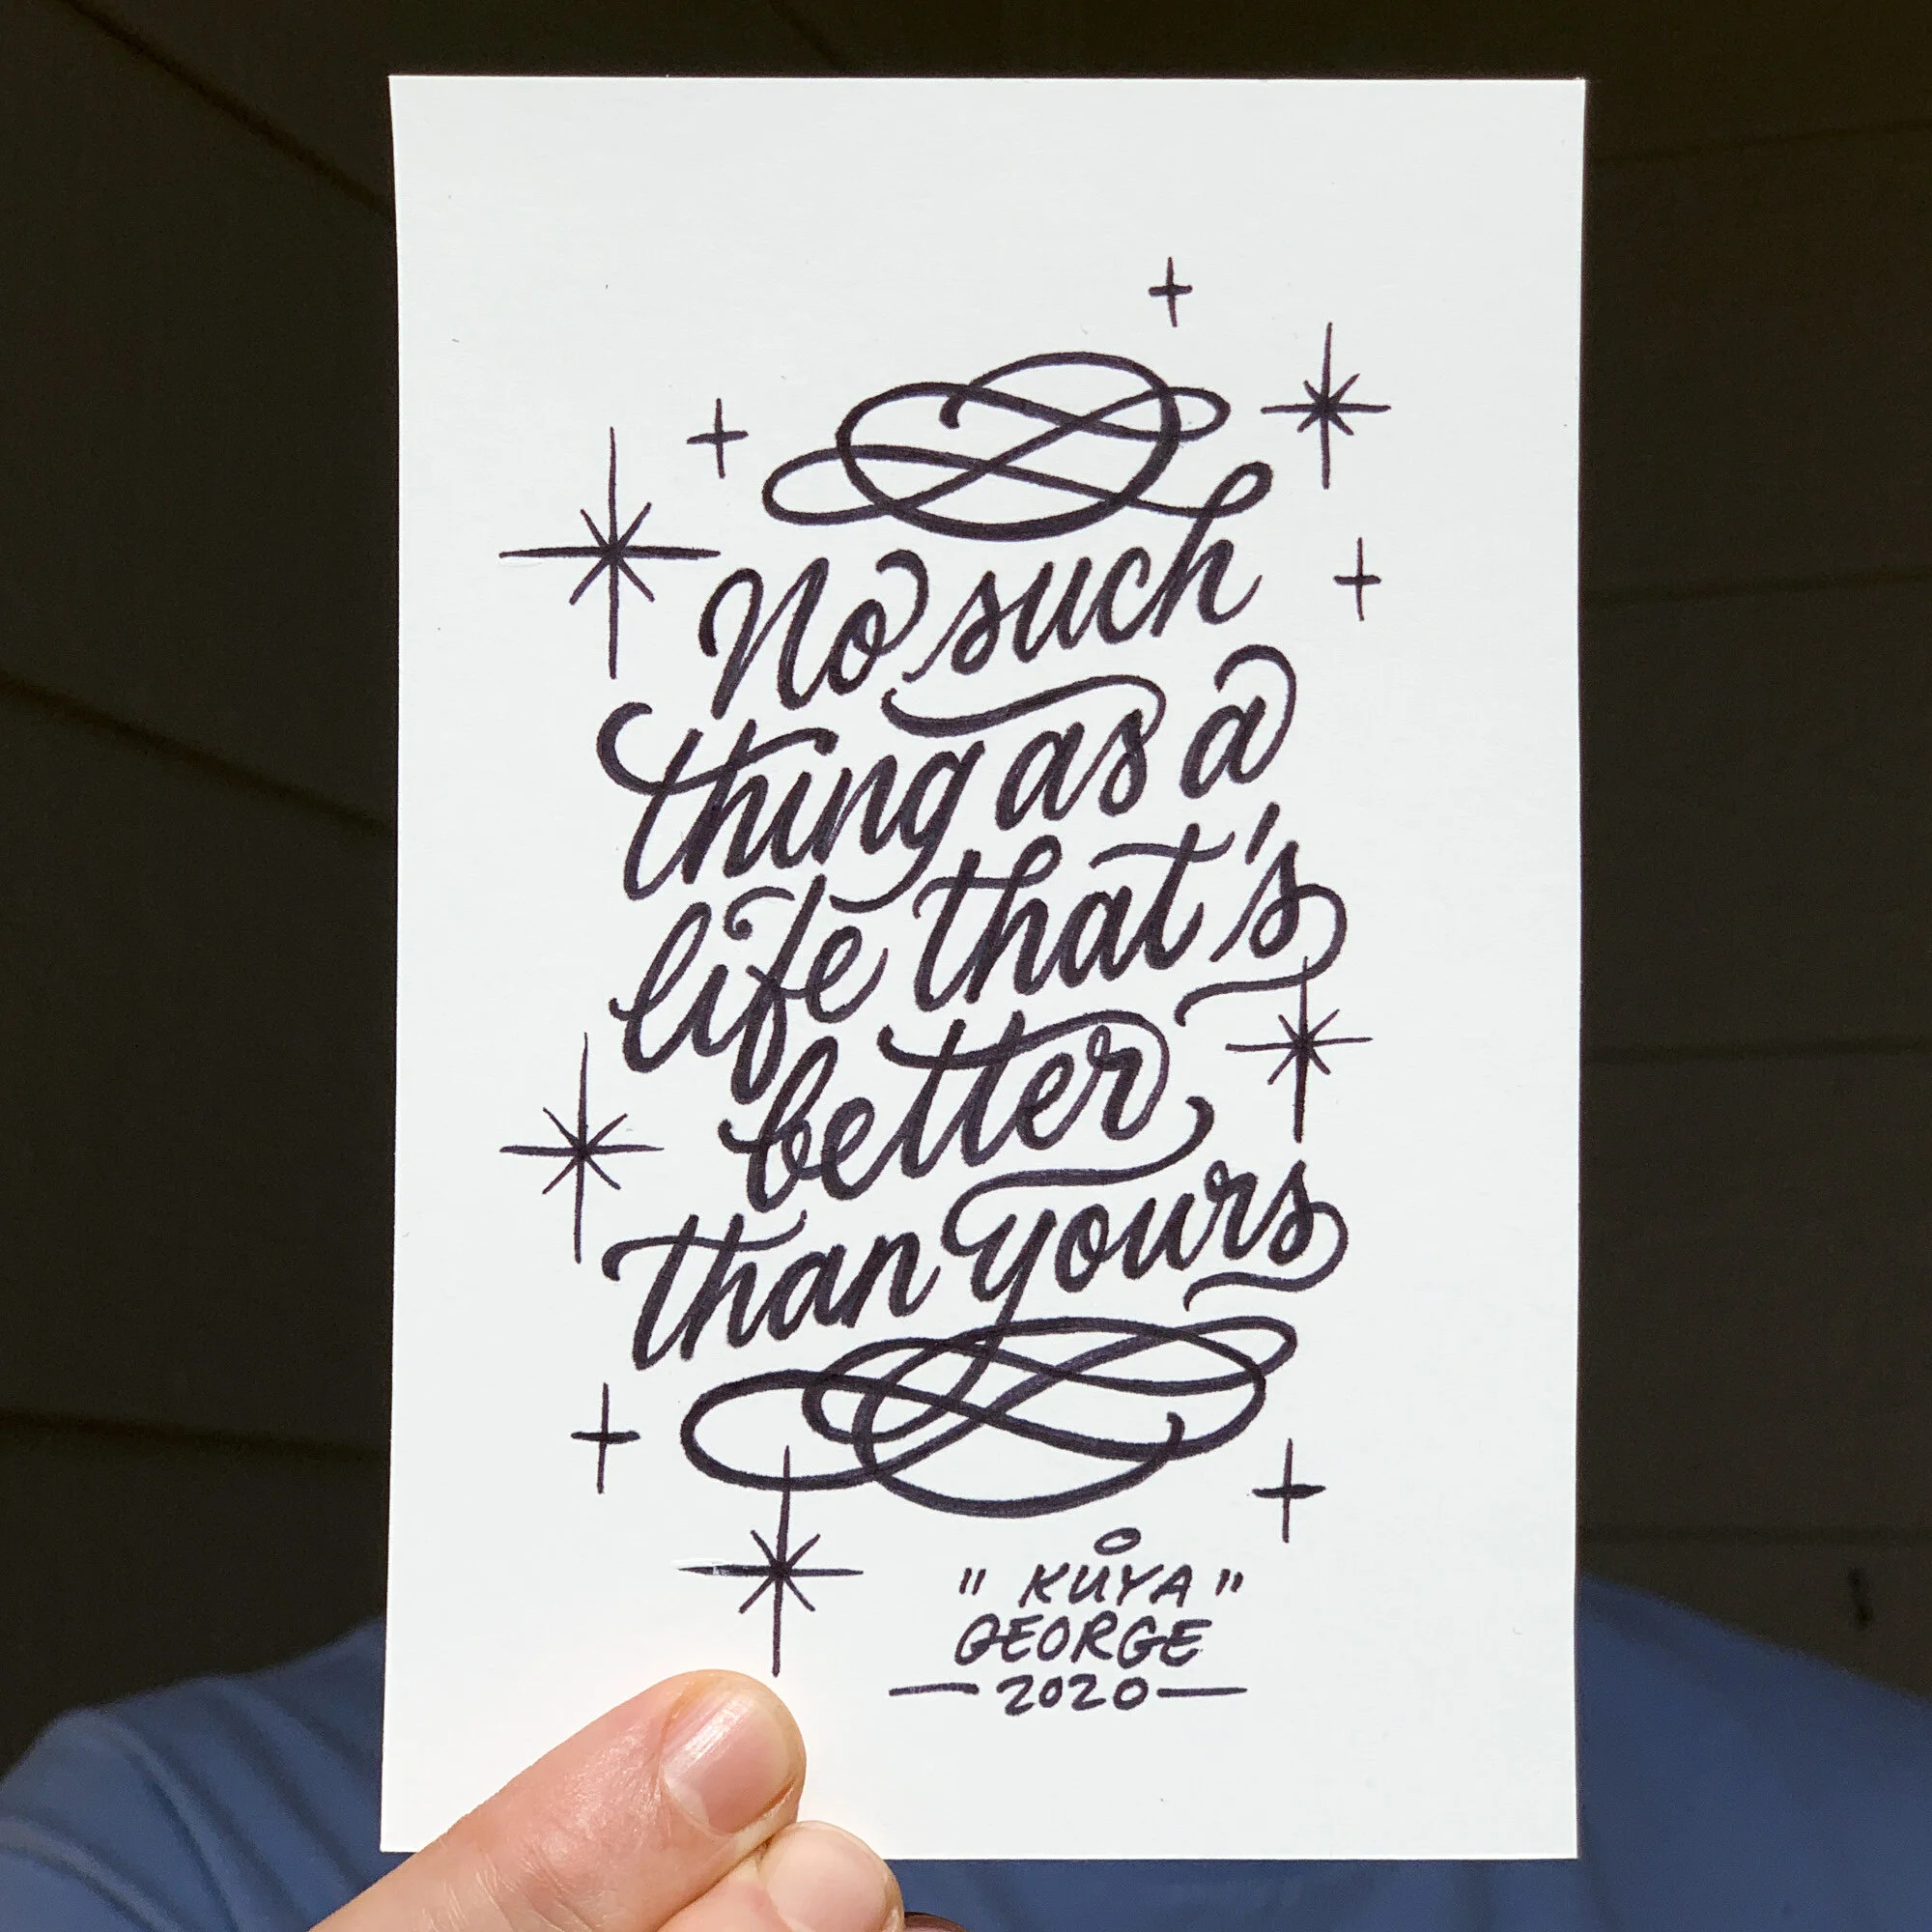 No such
thing as a
life that's
better
than yours
"KUYA"
GEORGE
—2020—